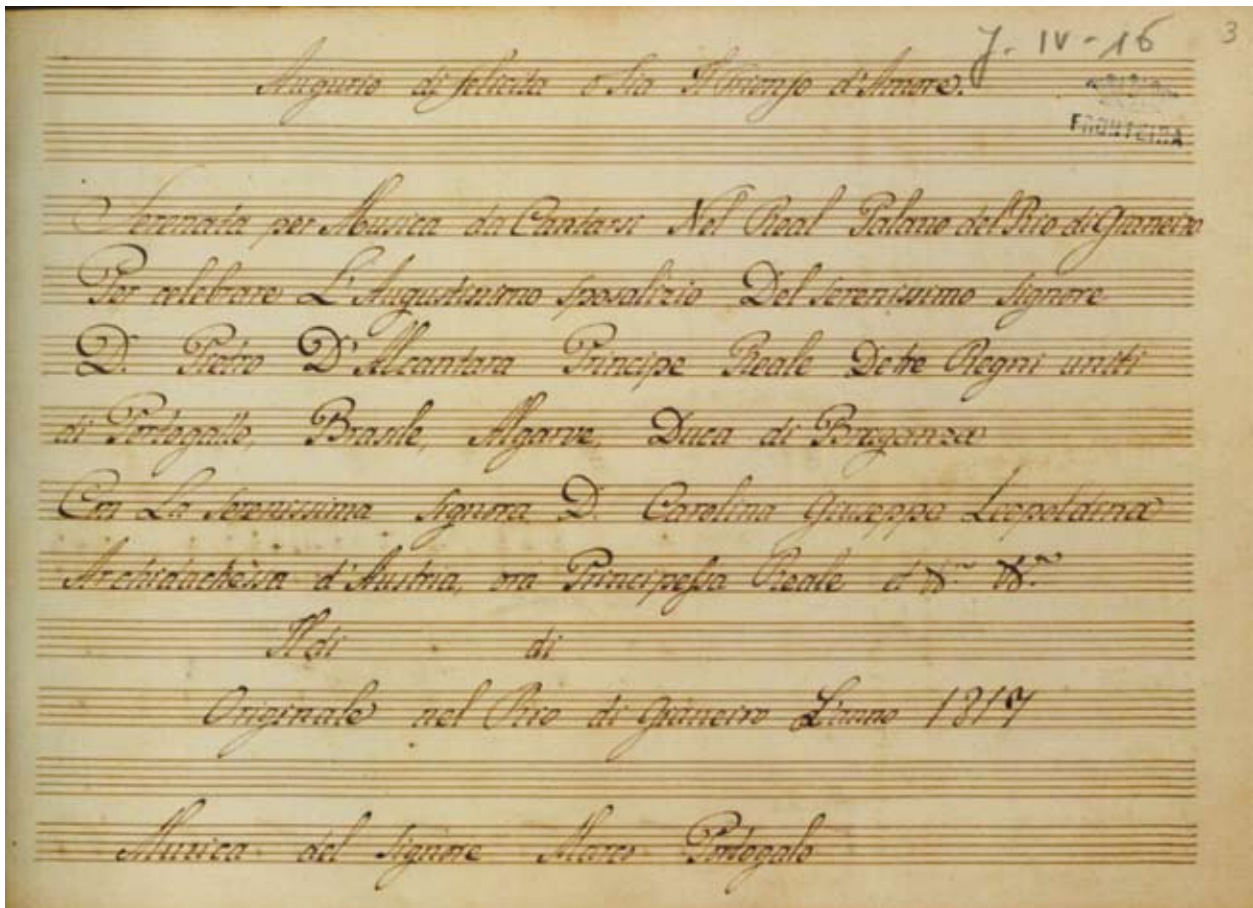 J-IV-16
3
Augurio di felicita o Sia Il Trionfo d'Amore.
FRONTEIRA
Serenata per Musica da Cantarsi Nel Real Palazzo del Rio di Gianeiro
Per celebrare L'Augustissimo sposalizio Del serenissimo signore
D. Pietro D'Alcantara Principe Reale De tre Regni uniti
di Portogallo, Brasile, Algarve, Duca di Braganza
Con La serenissima signora D. Carolina Giuseppa Leopoldina
Archiduchessa d'Austria, ora Principessa Reale
Il di di
Originale nel Rio di Gianeiro L'anno 1817
Musica del Signore Marco Portogalo